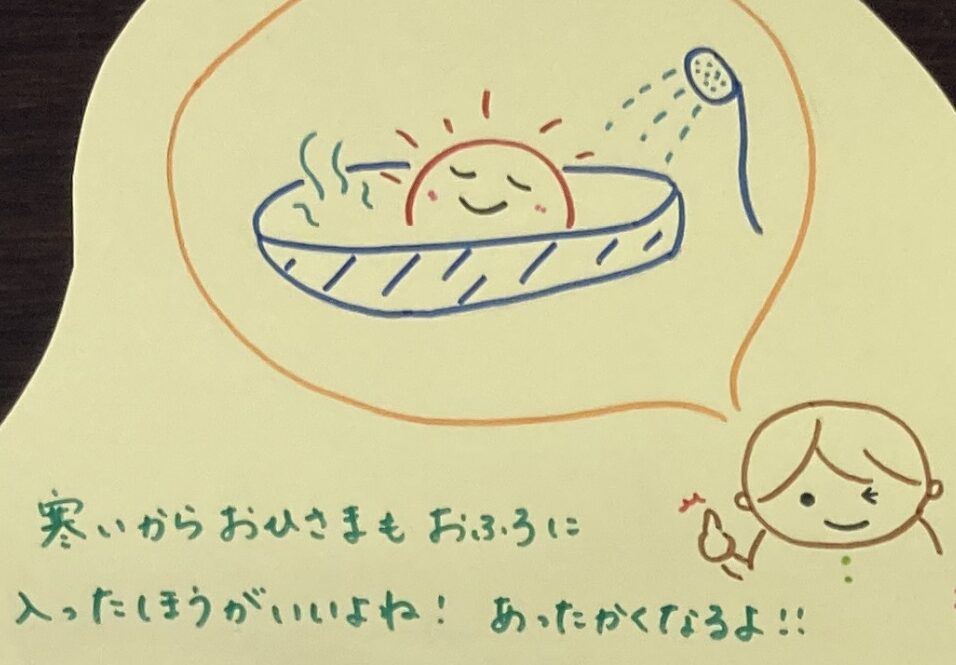 寒いからおひさまもおふろに
入ったほうがいいよね! あったかくなるよ!!